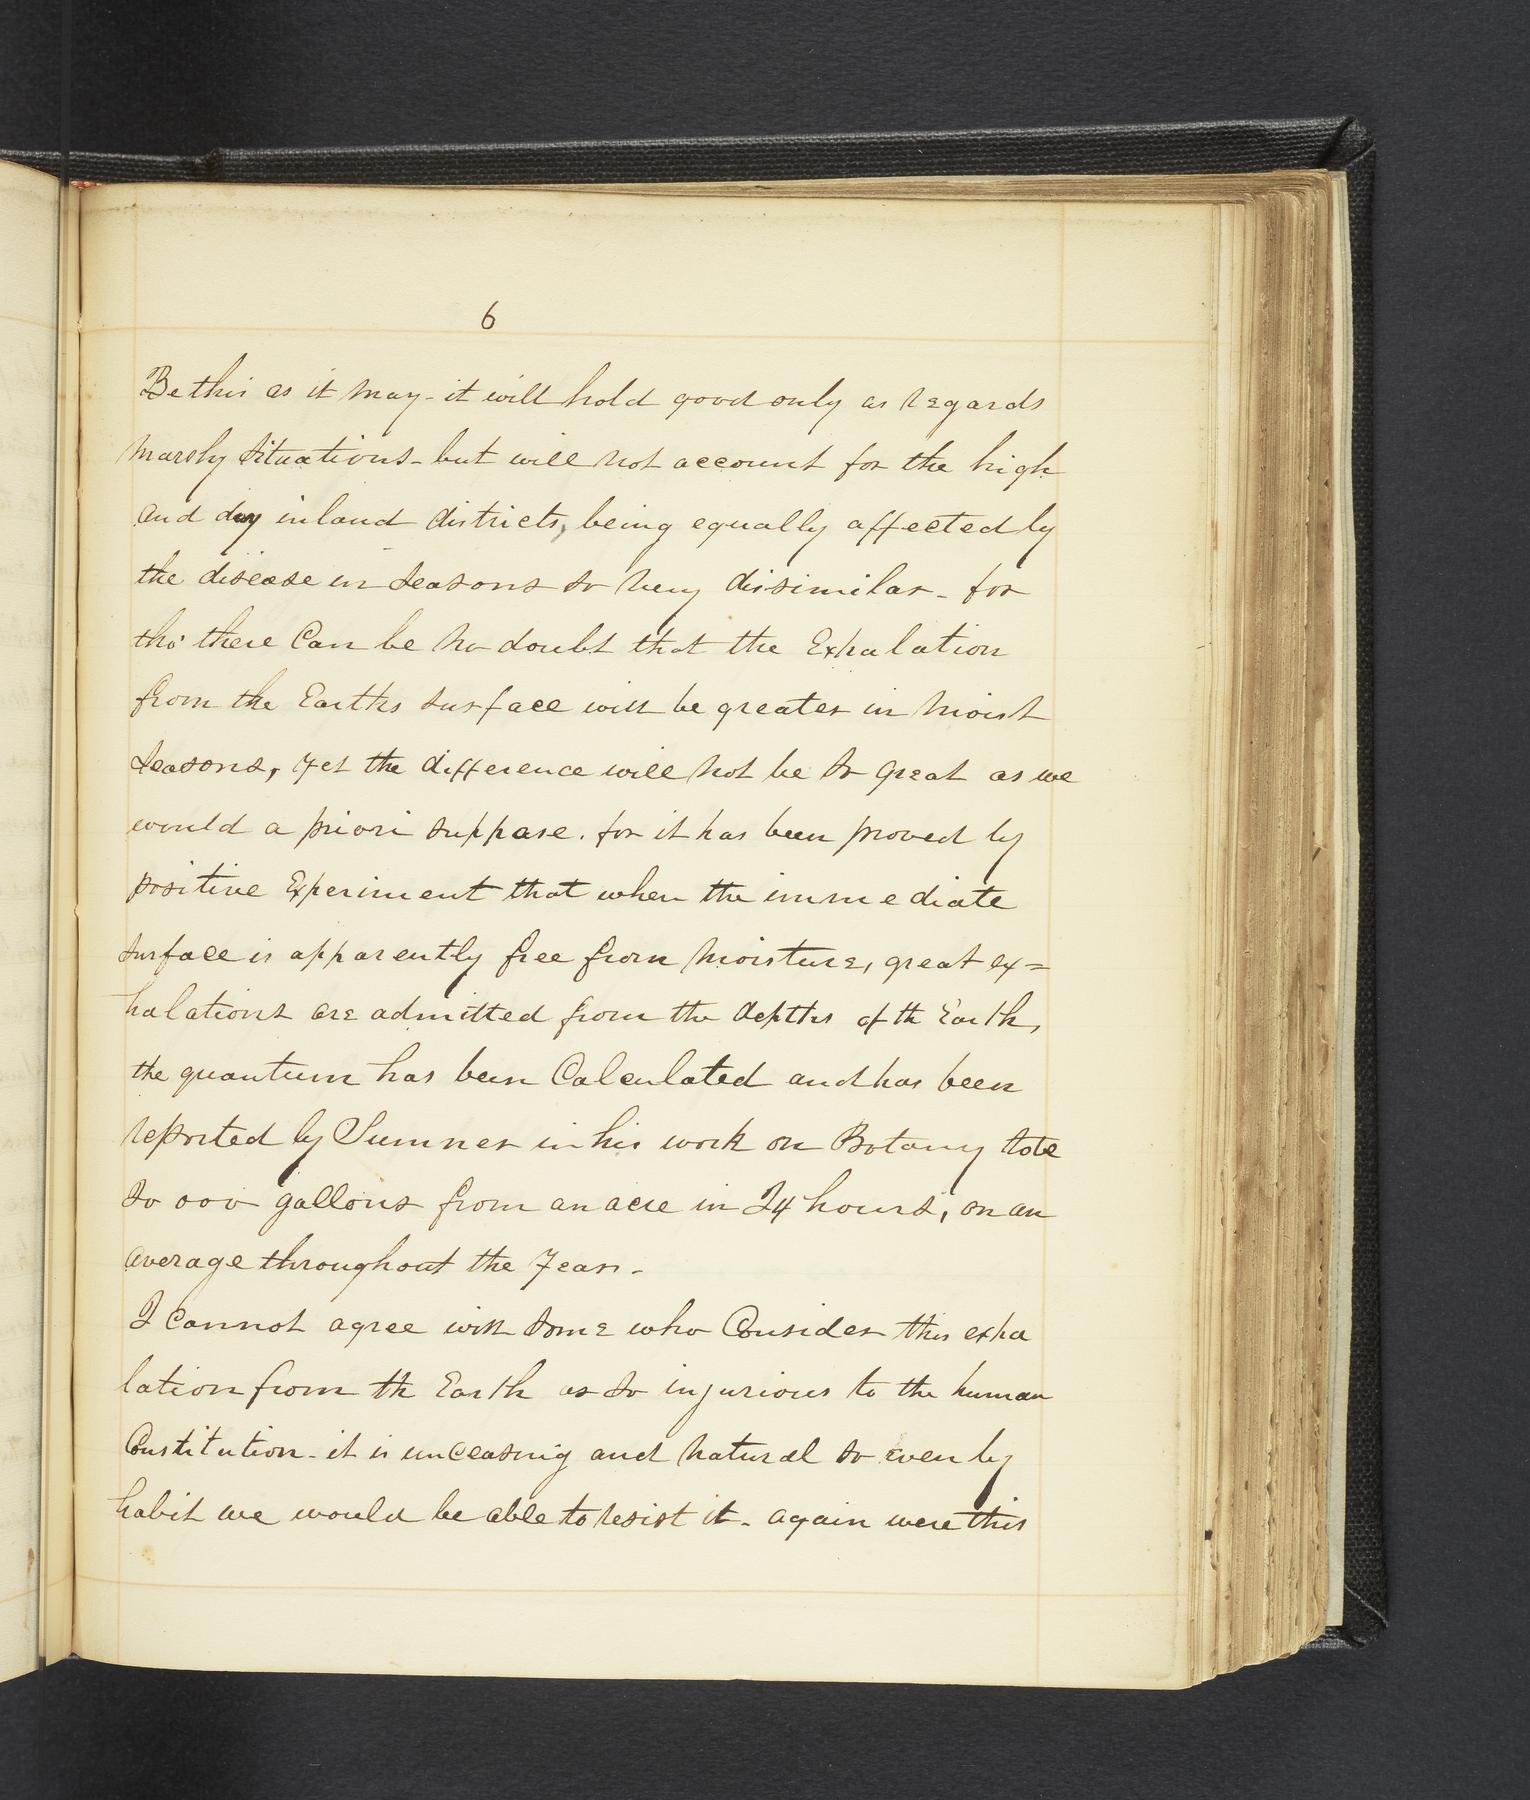 6
Be this as it may - it will hold good only as regards
marshy situations - but will not account for the high
and dry inland districts, being equally affected by
the disease in seasons so very dissimilar - for
tho' there Can be no doubt that the Exhalation
from the Earths surface will be greater in moist
seasons, yet the difference will not be so great as we
would a priori suppose. for it has been proved by
positive Experiment that when the immediate
surface is apparently free from moisture, great ex=
halations are admitted from the depths of th Earth,
the quantum has been Calculated and has been
reported by Sumner in his work on Botany to be
000 gallons from an acre in 24 hours, on an
average throughout the Year -
I cannot agree with some who Consider this exha
lation from th Earth as so injurious to the human
Constitution - it is unceasing and natural so even by
habit we would be able to resist it - again were this